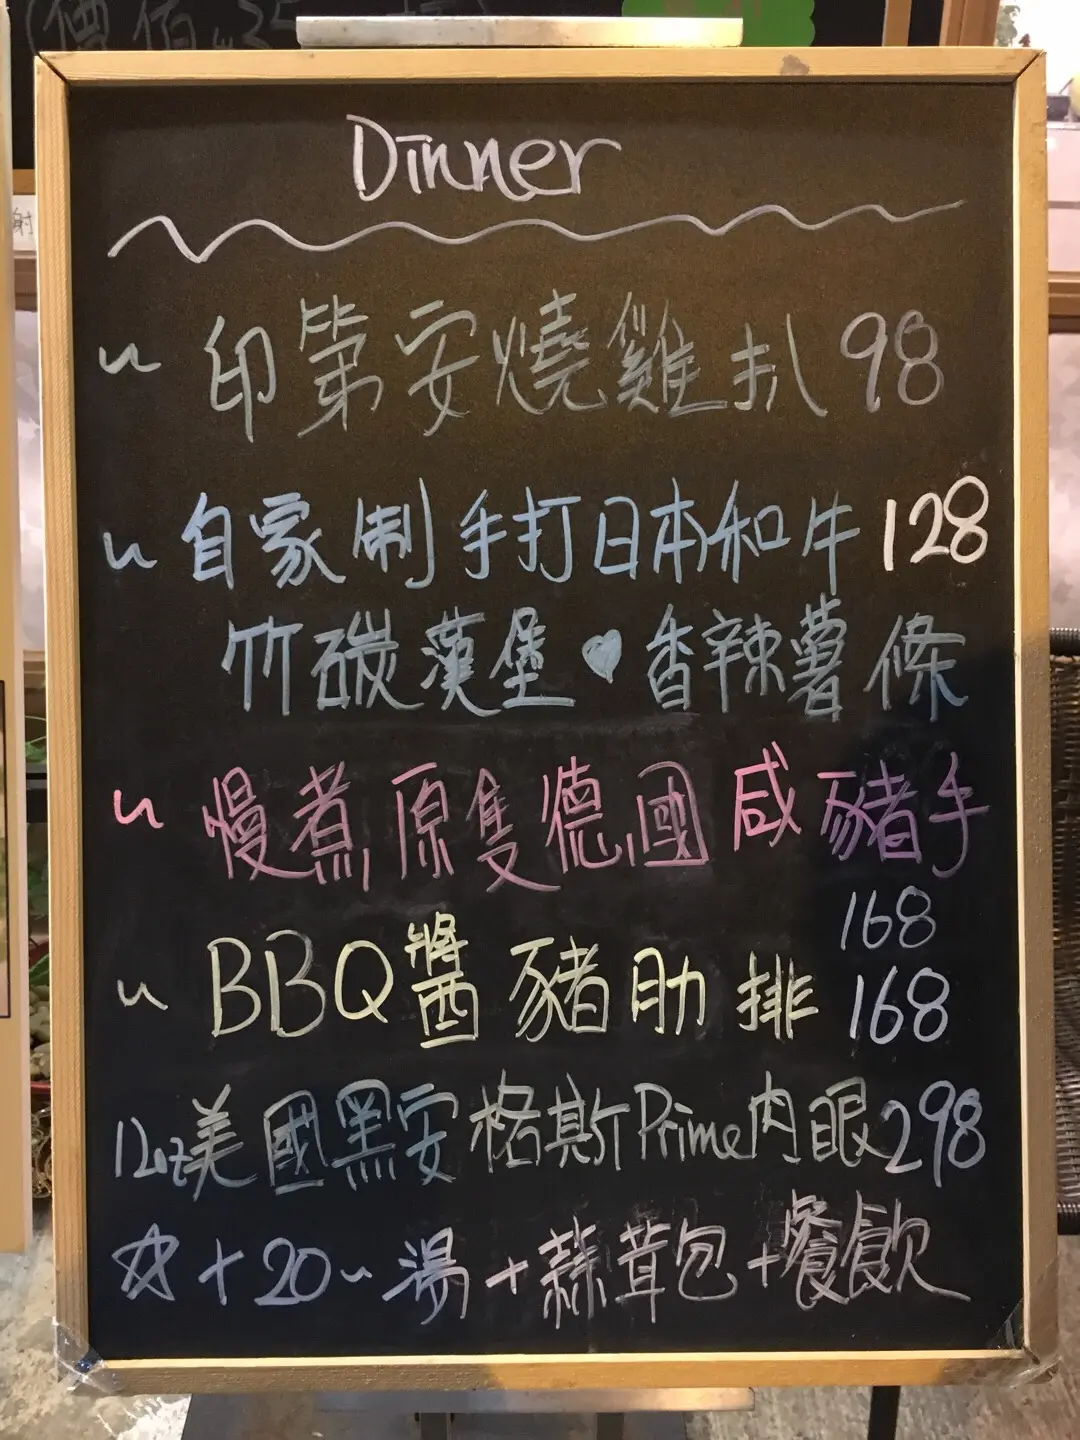 Dinner
~ 印第安燒雞扒 98
~ 自家制手打日本和牛 128
竹碳漢堡♥香辣薯條
~ 慢煮原隻德國咸豬手
168
~ BBQ醬豬肋排 168
12oz美國黑安格斯Prime肉眼298
☆+20~湯+蒜茸包+餐飲